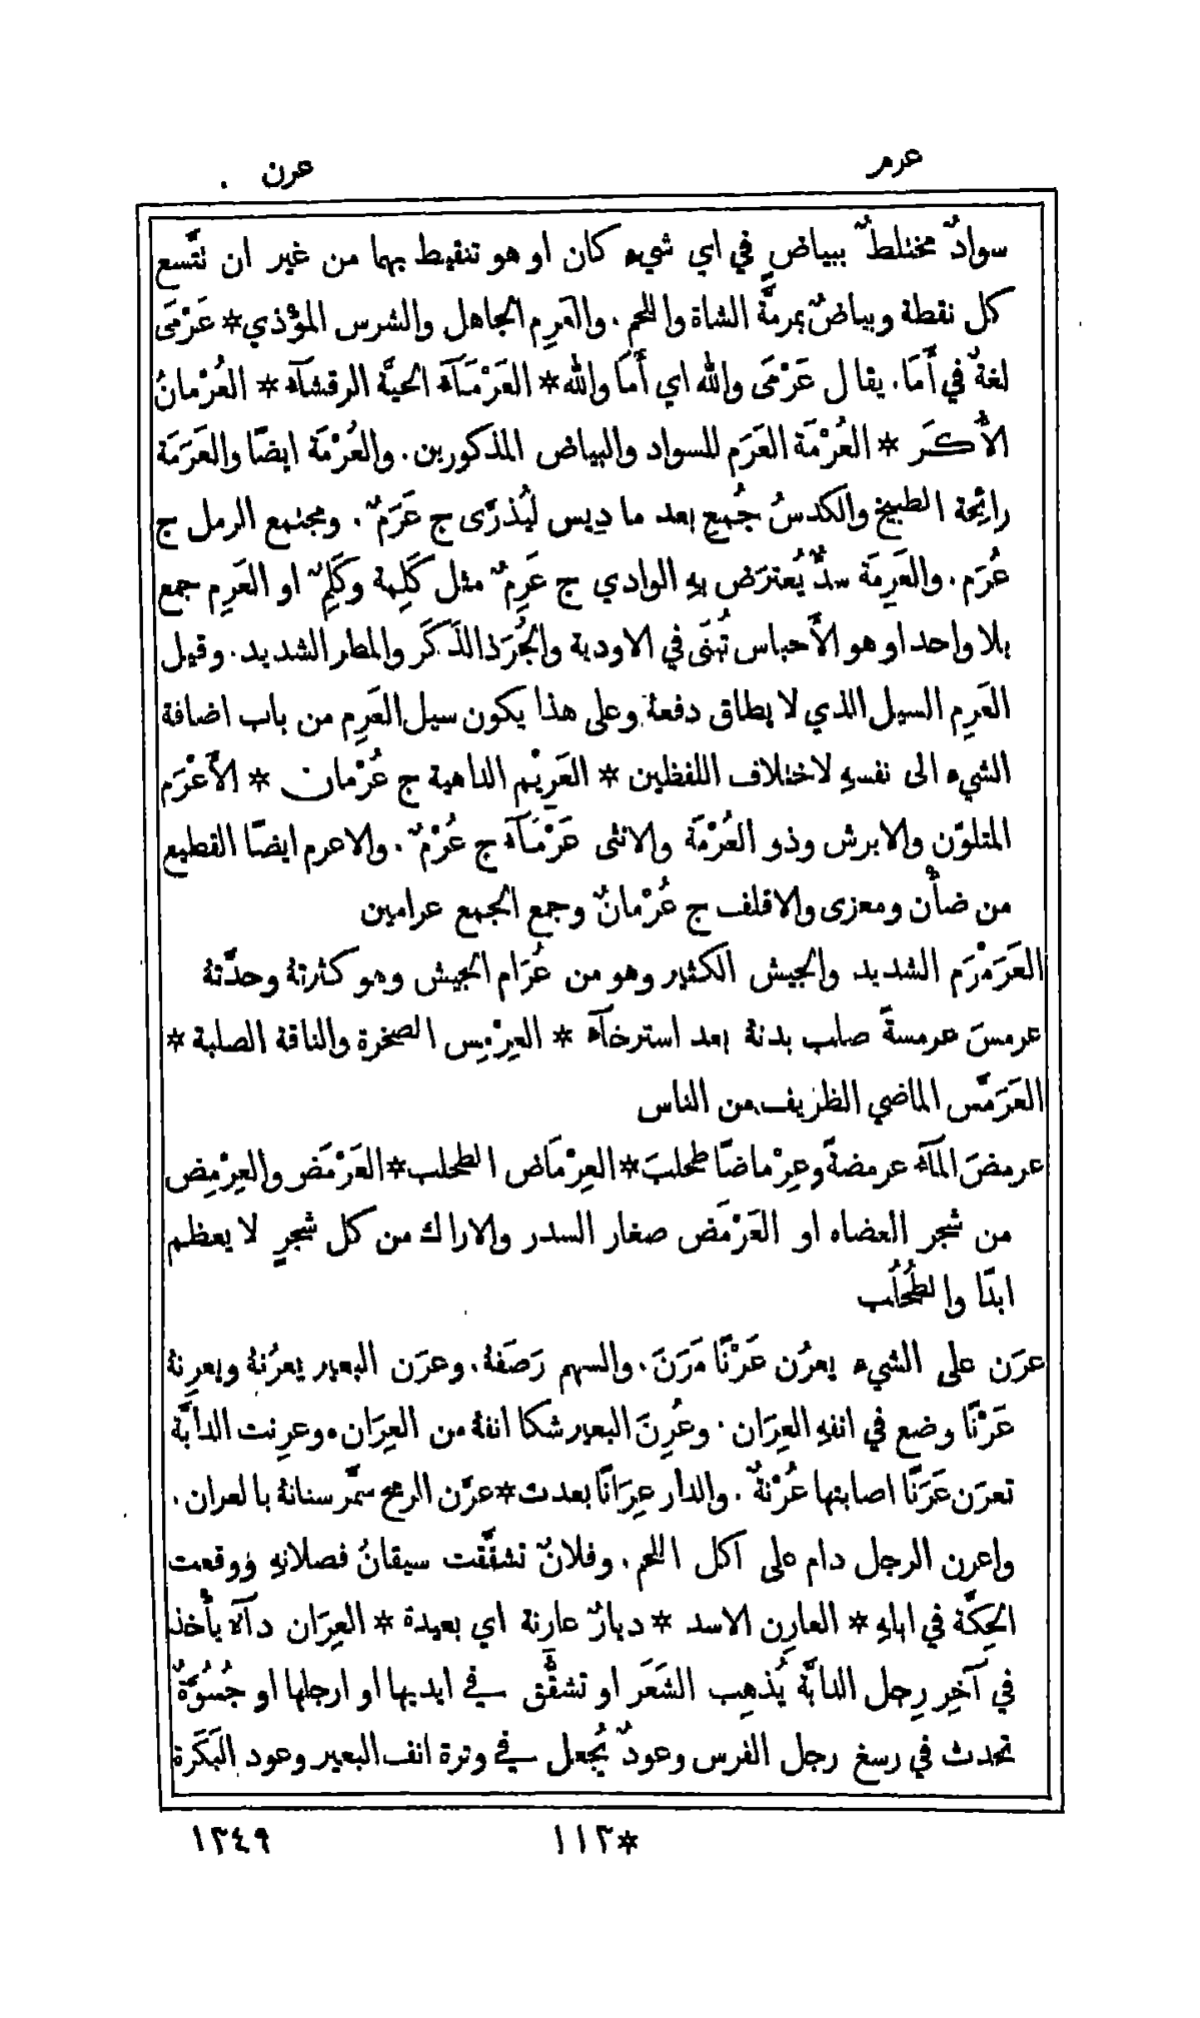 عرم
عرن
سوادٌ مختلطٌ ببياضٍ في اي شيء كان او هو تنقيط بهما من غير ان تتَّسع
كل نقطة وبياضٌ بمرمَّة الشاة واللحم. والعَرِم الجاهل والشرس المؤْذي* عَرْمَى
لغةٌ في أَمَا. يقال عَرْمَى والله اي أَمَا والله* العَرْمَآءَ الحيَّة الرقشآء* العُرْمانُ
الأَكَرَ* العُرْمَة العَرَم للسواد والبياض المذكورين. والعُرْمَة ايضًا والعَرَمَة
رائِحة الطبيخ والكدسُ جُمِع بعد ما دِيس ليُذرَّى ج عَرَمٌ. ومجتمع الرمل ج
عُرَم. والعَرِمَة سدٌّ يُعترَض بهِ الوادي ج عَرِمٌ مثل كَلِمة وكَلِمٌ او العَرِم جمع
بلا واحد او هو الأَحباس تُبنَى في الاودية والجُرَذ الذَكَر والمطر الشديد. وقيل
العَرِم السيل الذي لا يطاق دفعهُ وعلى هذا يكون سيل العَرِم من باب اضافة
الشيء الى نفسهِ لاختلاف اللفظين* العَرِيْم الداهية ج عُرْمان* الأَعْرَم
المتلوّن والابرش وذو العُرْمَة والانثى عَرْمَآء ج عُرْمٌ. والاعرم ايضًا القطيع
من ضأْن ومعزى والاقلف ج عُرْمانٌ وجمع الجمع عرامين
العَرَمْرَم الشديد والجيش الكثير وهو من عُرَام الجيش وهو كثرتهُ وحدَّتهُ
عرمسَ عرمسةً صلب بدنهُ بعد استرخآءَ* العِرْمِس الصخرة والناقة الصلبة*
العَرَمَّس الماضي الظريف من الناس
عرمضَ المآء عرمضةً وعِرْماضًا طحلبَ* العِرْمَاض الطحلب* العَرْمَض والعِرْمِض
من شجر العضاه او العَرْمَض صغار السدر والاراك من كل شجرٍ لا يعظم
ابدًا والطُحْلُب
عرَن على الشيء يعرُن عَرْنًا مَرَنَ. والسهم رَصَفهُ. وعرَن البعير يعرُنهُ ويعرِنهُ
عَرْنًا وضع في انفهِ العِرَان. وعُرِنَ البعير شكا انفهُ من العِرَان. وعرِنت الدابَّة
تعرَن عَرَنًا اصابتها عُرْنةٌ. والدار عِرَانًا بعدت* عرَّن الرمح سمَّر سنانهُ بالعران.
واعرن الرجل دام على اكل اللحم. وفلانٌ تشقَّقت سيقانُ فصلانهِ ووقعت
الحِكَّة في ابلهِ* العارِن الاسد* ديارٌ عارنة اي بعيدة* العِرَان دآء يأْخذ
في آخِر رِجل الدابَّة يُذهِب الشَعَر او تشقُّق في ايديها او ارجلها او جُسُوَّةٌ
تحدث في رسغ رجل الفرس وعودٌ يُجعل في وترة انف البعير وعود البَكَرة
*١١٢
١٣٤٩